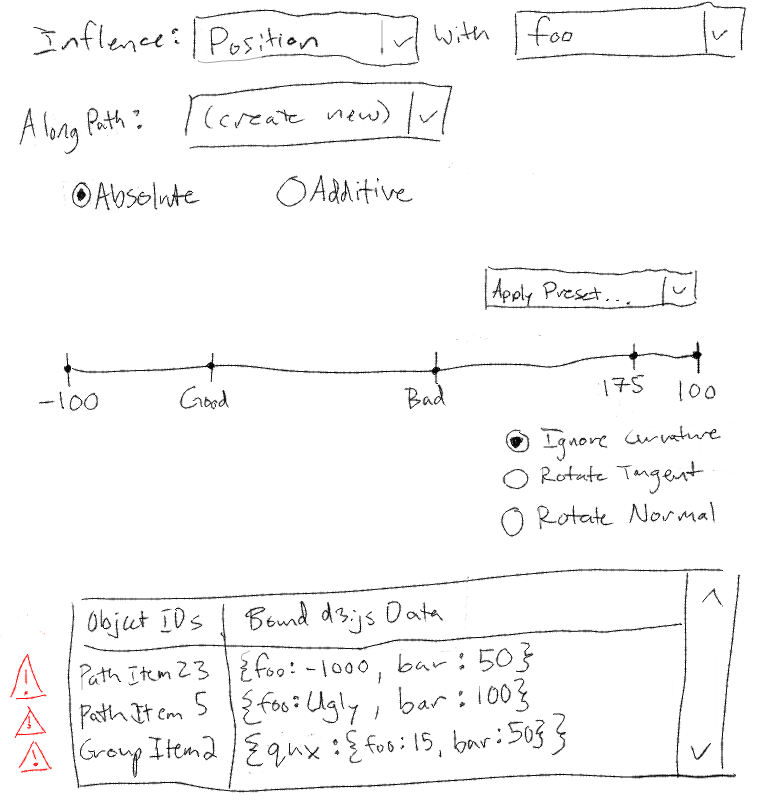 Inflence: Position with foo
Along Path: (create new)
Absolute Additive
Apply Preset...
-100 Good Bad 175 100
Ignore Curvature
Rotate Tangent
Rotate Normal
Object IDs Bound d3.js Data
Path Item 23 {foo:-1000, bar: 50}
! Path Item 5 {foo:Ugly, bar:100}
! Group Item2 {qux:{foo:15, bar:50}}
!